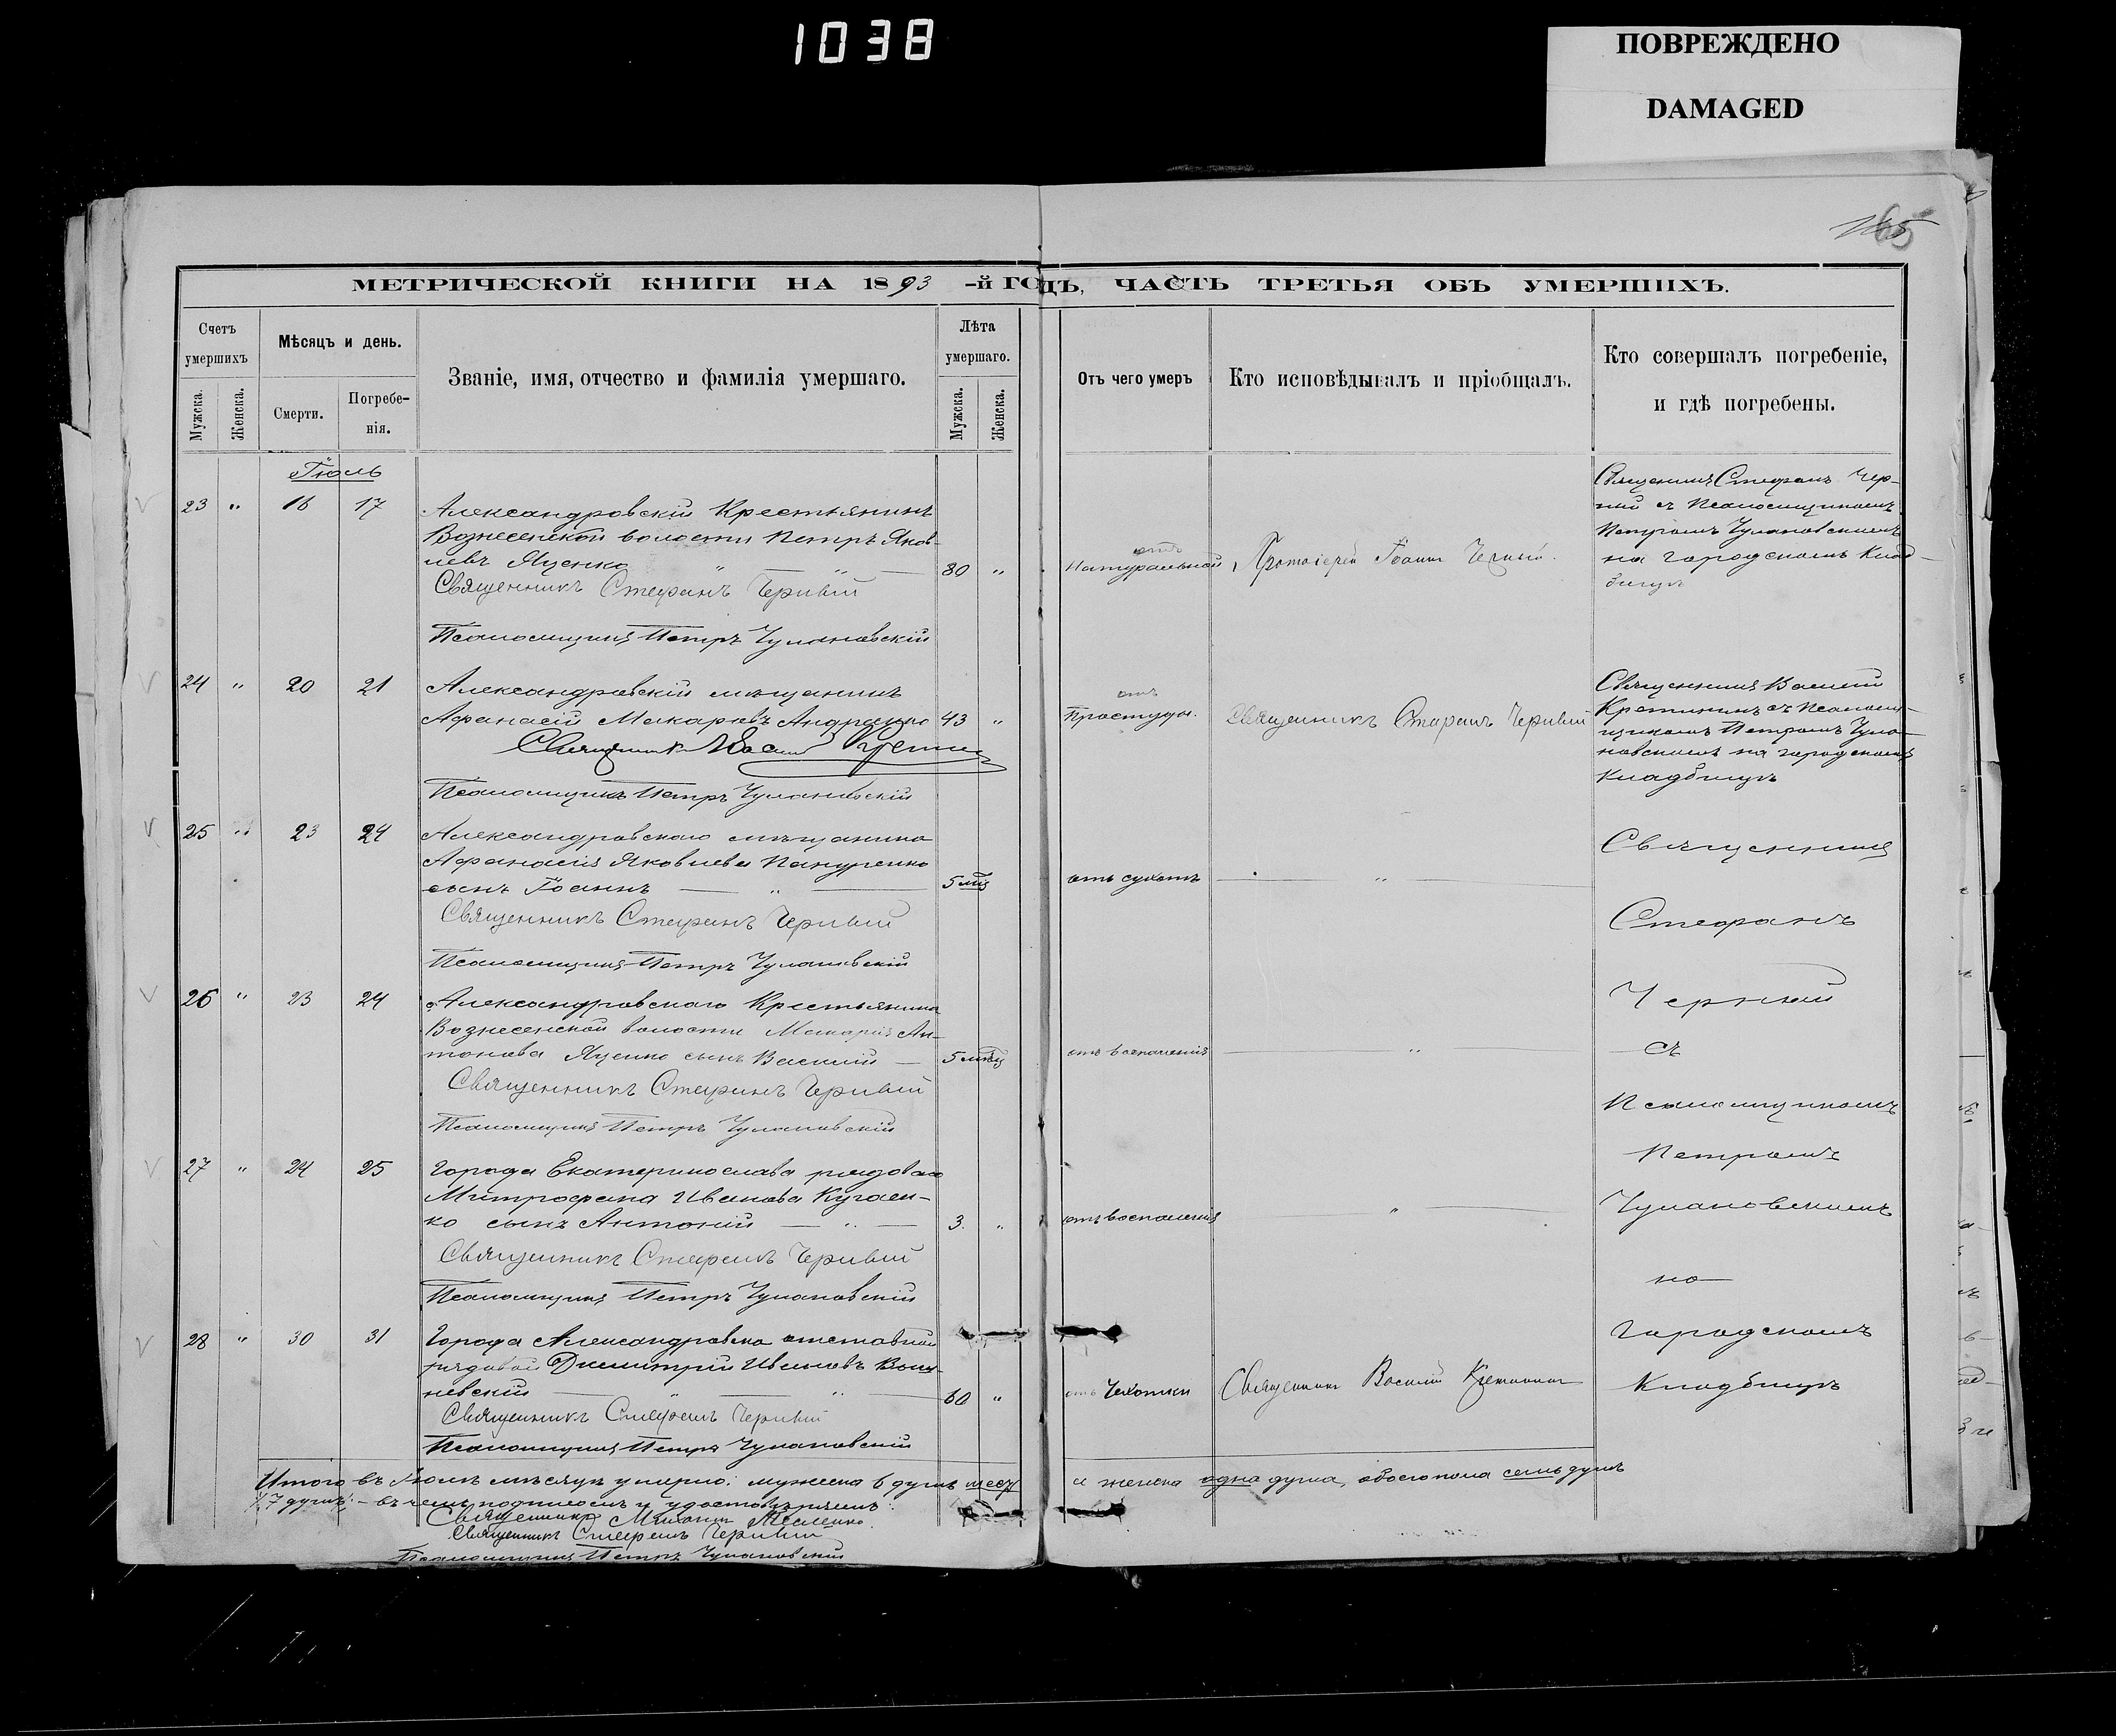 1038
ПОВРЕЖДЕНО
DAMAGED
МЕТРИЧЕСКОЙ КНИГИ НА 1893 -й ГОДЪ, ЧАСТЬ ТРЕТЬЯ ОБЪ УМЕРШИХЪ.
Счетъ умершихъ
Мужска.
Женска.
Мѣсяцъ и день.
Смерти.
Погребе-
нія.
Званіе, имя, отчество и фамилія умершаго.
Лѣта умершаго.
Мужска.
Женска.
Отъ чего умеръ
Кто исповѣдывалъ и пріобщалъ.
Кто совершалъ погребеніе,
и гдѣ погребены.
Іюль
23 " 16 17
Александровскій Крестьянинъ
Вознесенской волости Петръ Яков-
левъ Яценко " — " —
80 "
отъ
Натуральной
Протоіерей Іоаннъ Черный
Священникъ Стефанъ Чер-
ный съ Псаломщикомъ
Петромъ Чулановскимъ
на городскомъ Клад-
бищѣ
Священникъ Стефанъ Черный
Псаломщикъ Петръ Чулановскій
24 " 20 21
Александровскій мѣщанинъ
Афанасій Макаровъ Андрющенко
43 "
отъ
Простуды.
Священникъ Стефанъ Черный
Священникъ Василій
Кретининъ съ Псалом-
щикомъ Петромъ Чула-
новскимъ на городскомъ
Кладбищѣ
Псаломщикъ Петръ Чулановскій
25 " 23 24
Александровскаго мѣщанина
Афанасія Яковлева
сынъ Іоаннъ — " —
5 мѣс
отъ сухотъ
— " —
Священникъ Стефанъ Черный
Псаломщикъ Петръ Чулановскій
26 " 23 24
Александровскаго Крестьянина
Вознесенской волости Макарія Ан-
тонова Яценко сынъ Василій —
5 мѣс
отъ воспаленія
— " —
Священникъ Стефанъ Черный
Псаломщикъ Петръ Чулановскій
27 " 24 25
Города Екатеринослава рядоваго
Митрофана Иванова Кугаен-
ко сынъ Антоній — " —
3. "
отъ воспаленія
— " —
Священникъ Стефанъ Черный
Псаломщикъ Петръ Чулановскій
28 " 30 31
Города Александровска отставной
рядовой Димитрій Ивановъ
невскій — " — " —
60 "
отъ Чахотки
Священникъ Василій Кретининъ
Священникъ Стефанъ Черный
Псаломщикъ Петръ Чулановскій
Священникъ
Стефанъ
Черный
съ
Псаломщикомъ
Петромъ
Чулановскимъ
на
городскомъ
Кладбищѣ
Итого въ Іюлѣ мѣсяцѣ умерло: мужеска 6 душъ и женска одна душа, обоего пола семь душъ
/7 душъ/ – въ чемъ подписомъ и удостовѣряемъ:
Священникъ
Священникъ Стефанъ Черный
Псаломщикъ Петръ Чулановскій